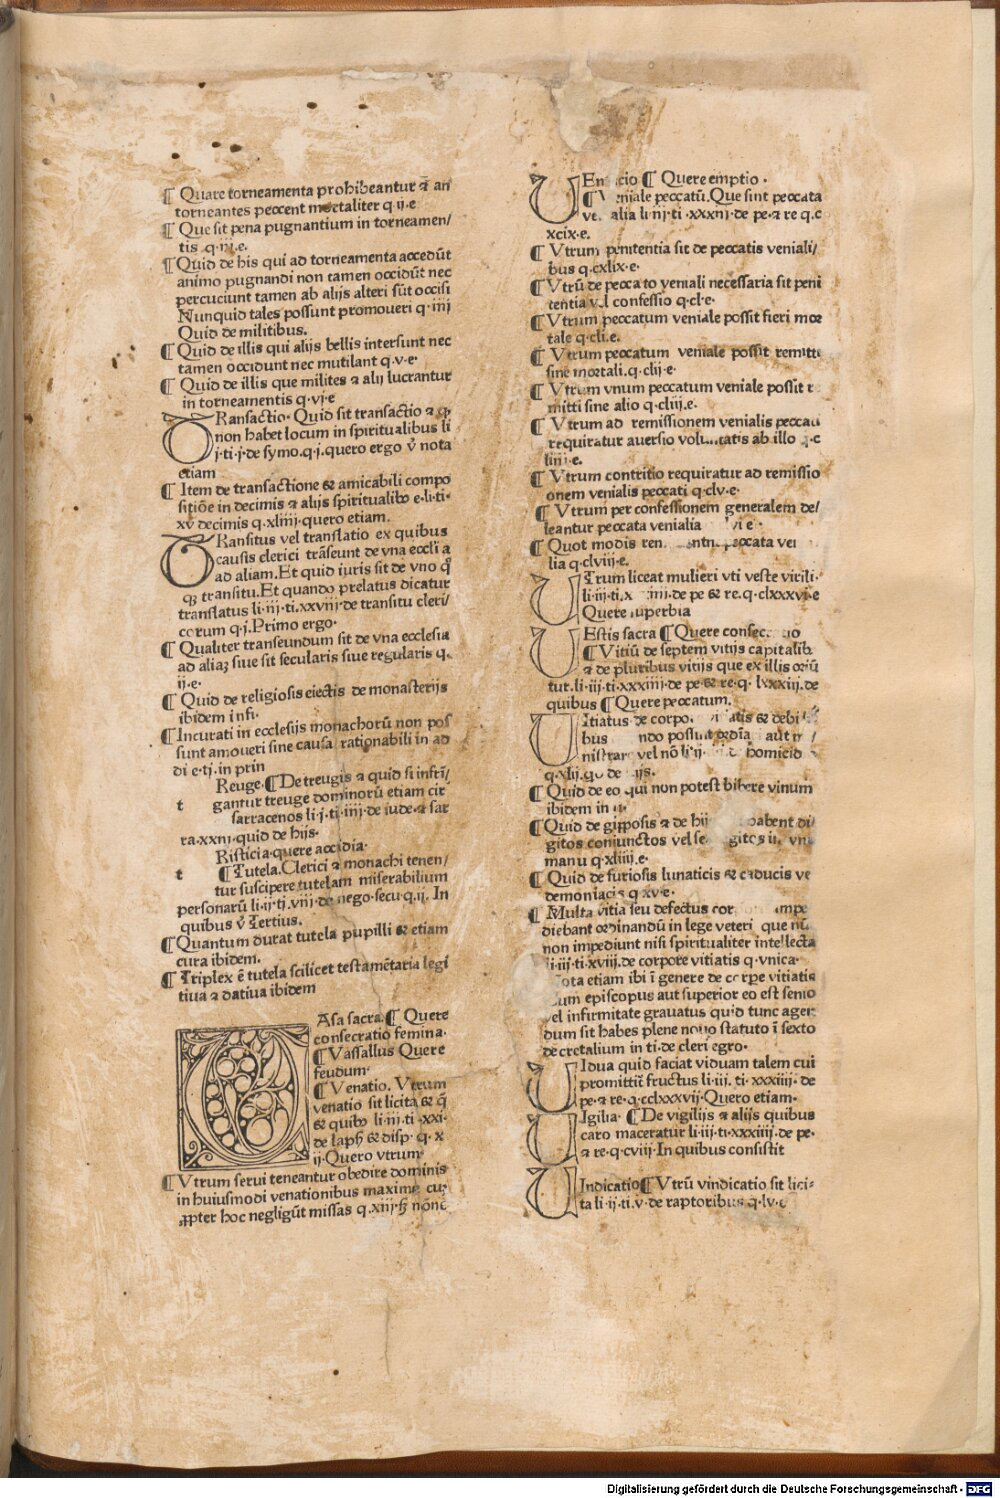 ¶ Quare torneamenta prohibeantur ⁊̄ an
torneantes peccent mortaliter q ij e
¶ Que sit pena pugnantium in torneamen/
tis q·iij·e.
¶ Quid de his qui ad torneamenta accedūt
animo pugnandi non tamen occidūt nec
percuciunt tamen ab alijs alteri sūt occisi
Nunquid tales possunt promoueri q·iiij
Quid de militibus.
¶ Quid de illis qui alijs bellis intersunt nec
tamen occidunt nec mutilant q·v·e·
¶ Quid de illis que milites ⁊ alij lucrantur
in torneamentis q·vj·e
TRansactio· Quid sit transactio ⁊ ꝙ
non habet locum in spiritualibus li
j·ti·j·de symo.q·j.quero ergo v̄ nota
etiam
¶ Item de transactione ⁊ amicabili compo
sitiōe in decimis ⁊ alijs spiritualibꝰ e·li·ti·
xv decimis q·xliiij·quero etiam.
TRansitus vel translatio ex quibus
causis clerici trāseunt de vna eccl̄i a
ad aliam.Et quid iuris sit de vno
transitu.Et quando prelatus dicatur
translatus li·iij·ti·xxviij·de transitu cleri/
corum q·j.Primo ergo·
¶ Qualiter transeundum sit de vna ecclesia
ad aliaꝫ siue sit secularis siue regularis q·
ij·e·
¶ Quid de religiosis eiectis de monasterijs
ibidem infi·
¶ Incurati in ecclesijs monachorū non pos
sunt amoueri sine causa rationabili in ad
di e·tj·in prin
t Reuge·¶ De treugis ⁊ quid si infrī/
gantur treuge dominorū etiam cir
sarracenos li·j·ti·iiij·de iude·⁊ sar
ra·xxnj·quid de hijs·
t Risticia·quere accidia·
¶ Tutela.Clerici ⁊ monachi tenen/
tur suscipere tutelam miserabilium
personarū li·ij·ti·viij·de nego·secu·q·ij. In
quibus v̄ Tertius.
¶ Quantum durat tutela pupilli ⁊ etiam
cura ibidem.
¶ Triplex ē tutela scilicet testamētaria legi
tiua ⁊ datiua ibidem
VAsa sacra.¶ Quere
consecratio femina·
¶ Vassallus Quere
feudum·
¶ Venatio. Vtrum
venatio sit licita ⁊
⁊ quibꝰ li·iij·ti·xxi·
de laps̄ ⁊ disp· q· x
ij·Quero vtrum
¶ Vtrum serui teneantur obedire dominis
in huiusmodi venationibus maxime
ꝓpter hoc negligūt missas q·xiij·
VEn cio ¶ Quere emptio·
¶ Veniale peccatū.Que sint peccata
ve alia li·iij·ti·xxxnj·de pe·⁊ re q·c
xcix·e.
¶ Vtrum penitentia sit de peccatis veniali/
bus q·cxlix·e·
¶ Vtrū de peccato veniali necessaria sit peni
tentia vel confessio q·cl·e·
¶ Vtrum peccatum veniale possit fieri mor
tale q·cli.e.
¶ Vtrum peccatum veniale possit remitti
sine mortali.q·clij·e·
¶ Vtrum vnum peccatum veniale possit r
mitti sine alio q·cliij.e.
¶ Vtrum ad remissionem venialis peccati
requiratur auersio voluntatis ab illo q·c
liiij·e.
¶ Vtrum contritio requiratur ad remissio
onem venialis peccati q·clv·e·
¶ Vtrum per confessionem generalem de/
leantur peccata venialia vi e·
¶ Quot modis rem peccata ve
lia q·clviij·e.
VTrum liceat mulieri vti veste virili·
li·iij·ti.x iiij·de pe ⁊ re.q·clxxxvi·e
Quere superbia
VEstis sacra ¶ Quere consec io
¶ Vitiū de septem vitijs capitalib
⁊ de pluribus vitijs que ex illis oriū
tur.li·iij·ti·xxxiiij·de pe·⁊ re·q· lxxxiij.de
quibus ¶ Quere peccatum.
VItiatus de corpo· atis ⁊ debi
bus ndo possunt aut
nistrare vel nō li·ij homicid
q·xlij.quo de ijs.
¶ Quid de eo qui non potest bibere vinum
ibidem in
¶ Quid de gipposis ⁊ de hij habent di/
gitos coniunctos vel se gitos
manu q·xliiij.e·
¶ Quid de furiosis lunaticis ⁊ caducis ve
demoniacis q xv·e·
¶ Multa vitia seu defectus cor impe
diebant ordinandū in lege veteri que nū
non impediunt nisi spiritualiter intellecta
li·iij·ti·xviij.de corpore vitiatis q·vnica·
ota etiam ibi ī genere de corpe vitiatis
cum episcopus aut superior eo est senio
vel infirmitate grauatus quid tunc agen
dum sit habes plene nouo statuto ī sexto
decretalium in ti·de cleri egro·
VIdua quid faciat viduam talem cui
promittit̄ fructus li·iij. ti·xxxiiij·de
pe·⁊ re·q·cclxxxvij·Quero etiam·
VIgilia·¶ De vigilijs ⁊ alijs quibus
caro maceratur li·iij·ti·xxxiiij.de pe·
⁊ re·q·cviij·In quibus consistit
VIndicatio¶ Vtrū vindicatio sit lici·
ta li·ij·ti.v·de raptoribus·q·lv·e
Digitalisierung gefördert durch die Deutsche Forschungsgemeinschaft - DFG